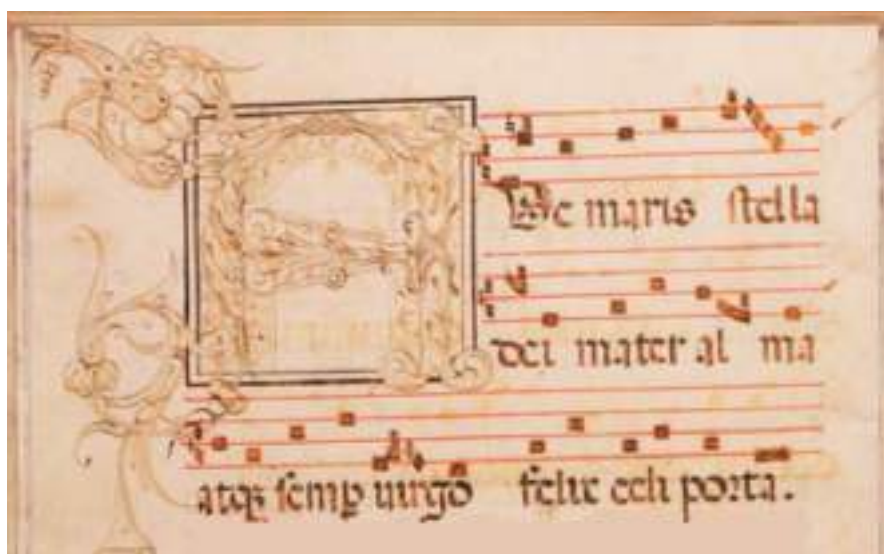 Ave maris stella
dei mater al ma
atqꝫ semꝑ uirgo felix celi porta.